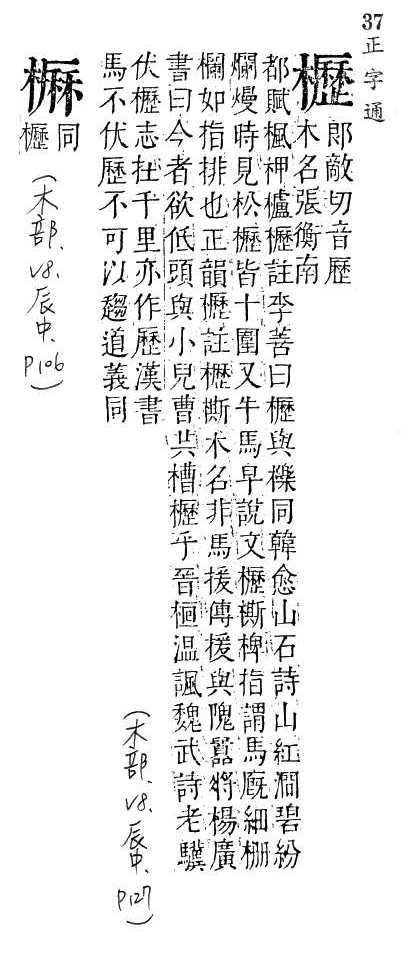 37
正字通
櫪
郎敵切音歷
木名張衡南
都賦楓柙櫨櫪註李善曰櫪與櫟同韓愈山石詩山紅澗碧紛
爛熳時見松櫪皆十圍又牛馬皁說文櫪㯕椑指謂馬廄細柵
欄如指排也正韻櫪註櫪㯕木名非馬援傳援與隗囂將楊廣
書曰今者欲低頭與小兒曹共槽櫪乎晉桓溫諷魏武詩老驥
伏櫪志在千里亦作歷漢書
馬不伏歷不可以趨道義同
(木部、v8、辰中、p127)
同
櫪
(木部、v8、辰中、p106)